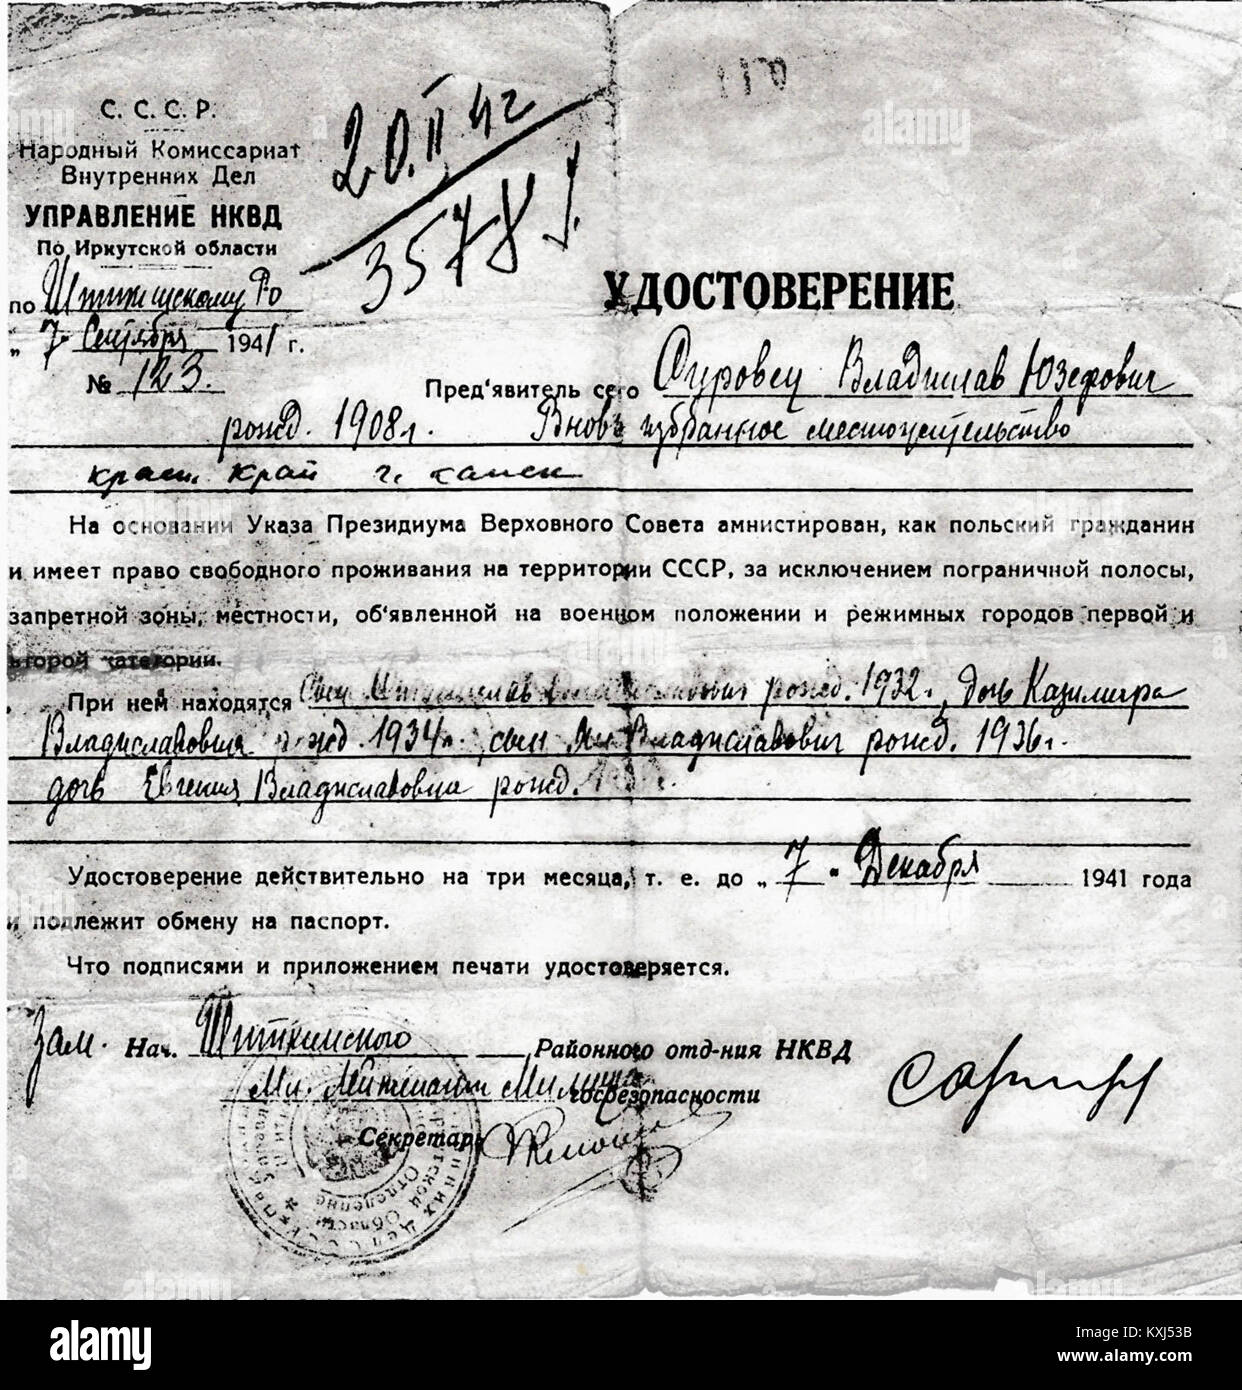 С. С. С. Р.
Народный Комиссариат
Внутренних Дел
УПРАВЛЕНИЕ НКВД
По Иркутской области
по Шиткинскому Ро
„ 7 Сентября 1941 г.
№ 123.
20.II 41г
3578
УДОСТОВЕРЕНИЕ
Пред'явитель сего Суровец Владислав Юзефович
рожд. 1908г. Вновь избранное местожительство
край г. Канск
На основании Указа Президиума Верховного Совета амнистирован, как польский гражданин
и имеет право свободного проживания на территории СССР, за исключением пограничной полосы,
запретной зоны, местности, об'явленной на военном положении и режимных городов первой и
второй категории.
При нем находятся Сын рожд. 1932г, дочь Казимира
Владиславовна рожд. 1934г. сын Ян Владиславович рожд. 1936г.
дочь Евгения Владиславовна рожд.
Удостоверение действительно на три месяца, т. е. до „ 7 " Декабря 1941 года
и подлежит обмену на паспорт.
Что подписями и приложением печати удостоверяется.
Зам. Нач. Шиткинского Районного отд-ния НКВД
Мл. Лейтенант Милиции госбезопасности
Секретарь
alamy
Image ID: KXJ53B
www.alamy.com